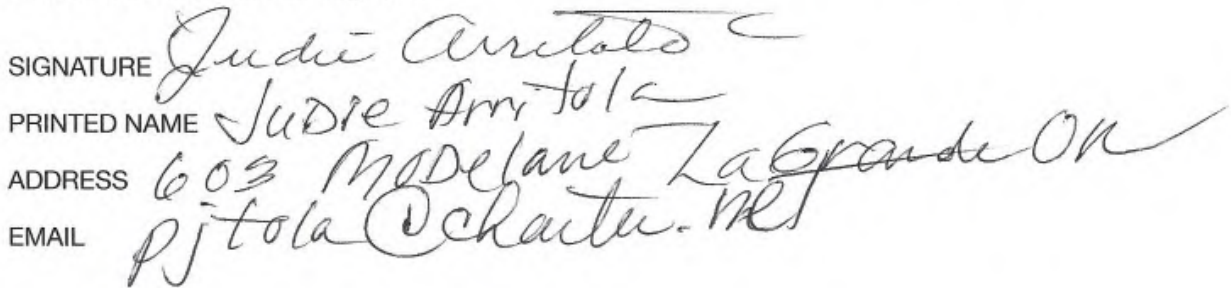 SIGNATURE Judie Arritola
PRINTED NAME JUDIE Arritola
ADDRESS 603 MODelane LaGrande OR
EMAIL pjtola@charter.net